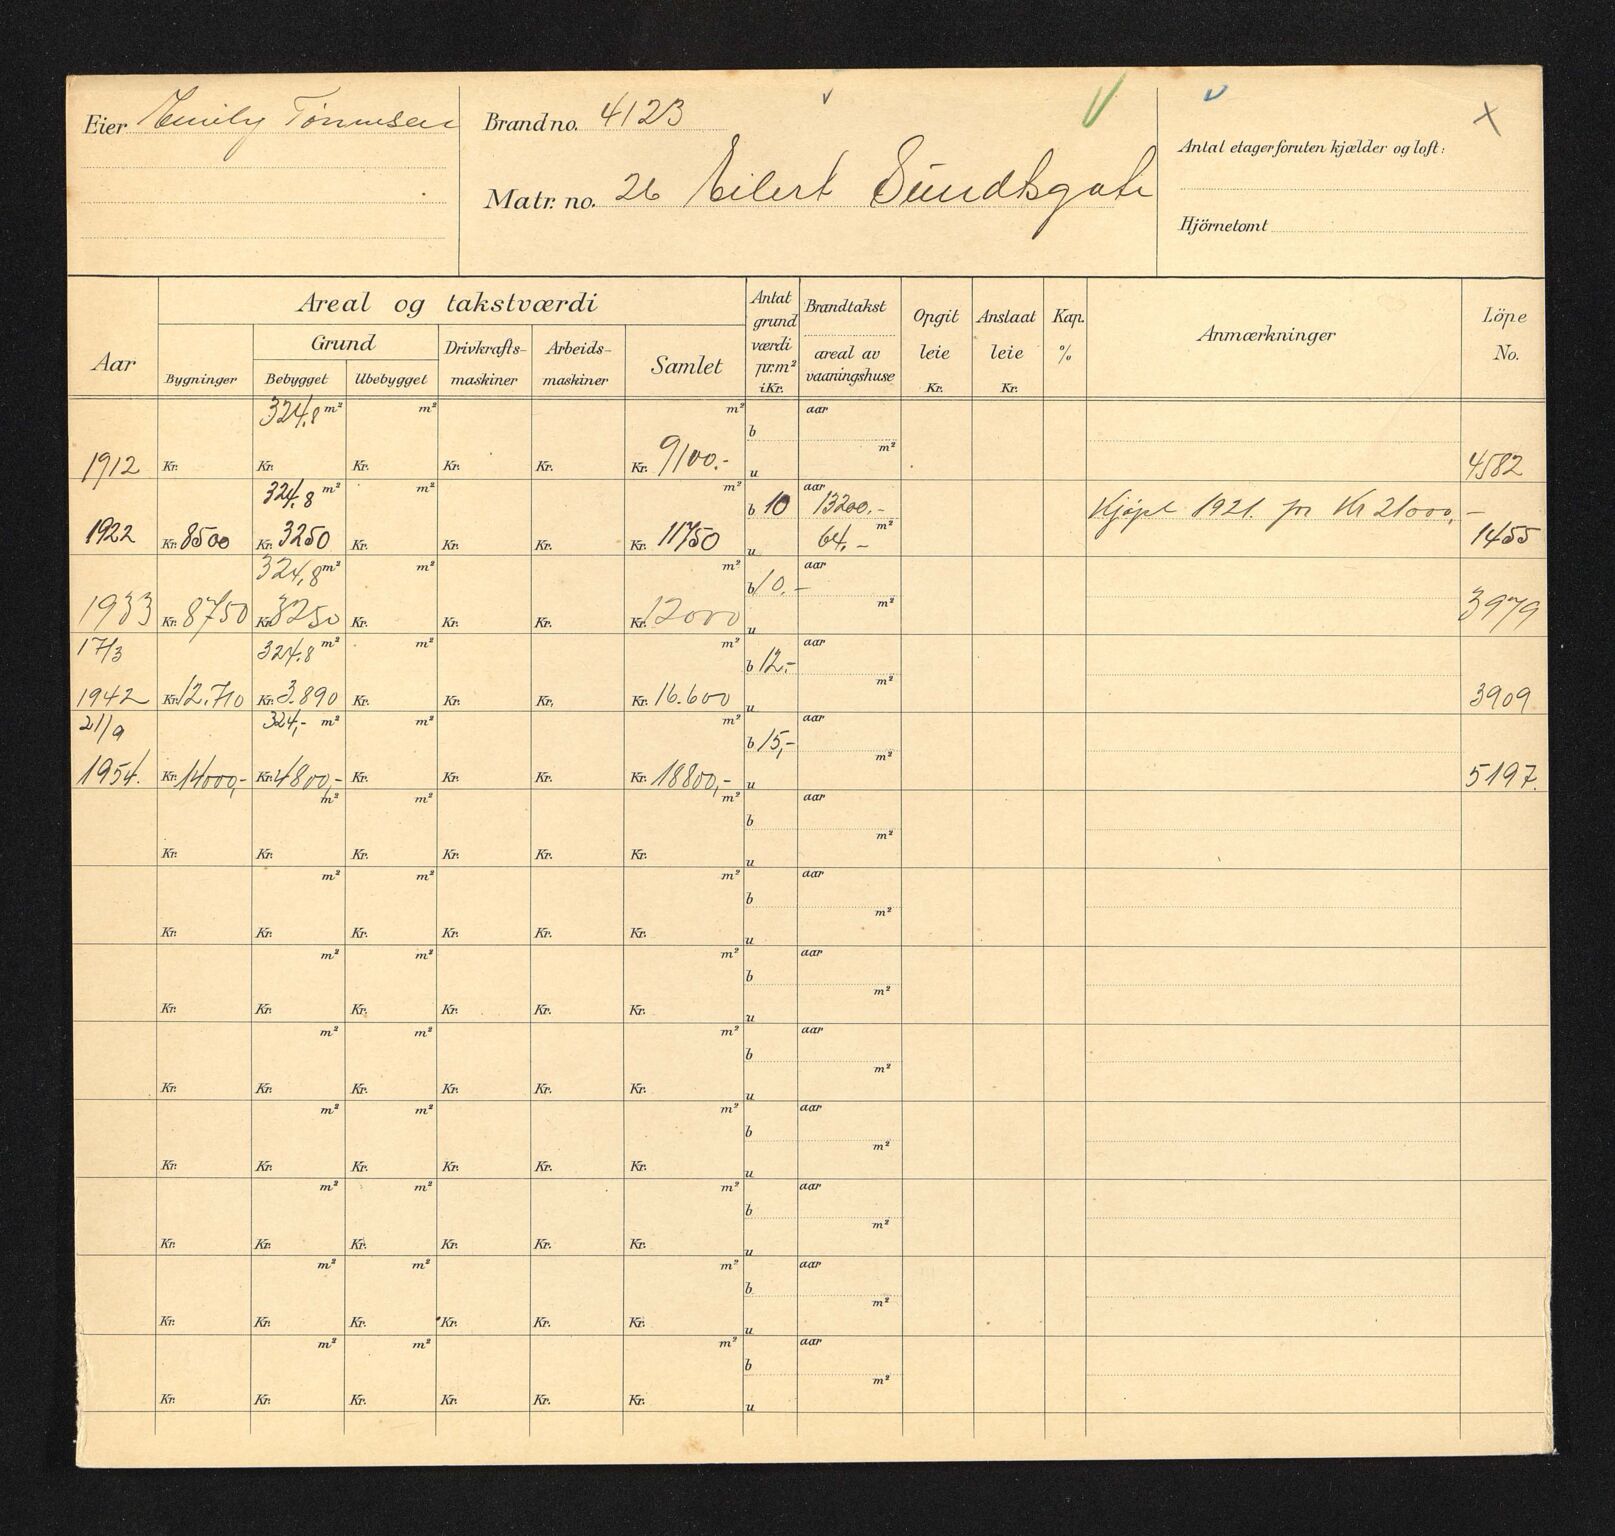 Eier Emily Tönnesen
Brandno. 4123
Matr. no. 26 Eilert Sundtsgate
Antal etager foruten kjælder og loft:
Hjörnetomt
Areal og takstværdi
Grund
Aar
Bygninger
Bebygget
Ubebygget
Drivkrafts-
maskiner
Arbeids-
maskiner
Samlet
Antat
grund
værdi
pr. m²
i Kr.
Brandtakst
areal av
vaaningshuse
Opgit
leie
Kr.
Anslaat
leie
Kr.
Kap.
%
Anmærkninger
Löpe
No.
324,8 m² m² m² b aar m²
1912 Kr. Kr. Kr. Kr. Kr. Kr. 9100.- u 4582
324,8 m² m² m² b 10 aar 13200.- Kjøpt 1921. for Kr 21000,-
1922 Kr. 8500 Kr. 3250 Kr. Kr. Kr. Kr. 11750 u 64.- m² 1455
324,8 m² m² m² b 10.- aar m²
1933 Kr. 8750 Kr. 3250 Kr. Kr. Kr. Kr. 12000 u 3979
17/3 324.8 m² m² m² b 12.- aar m²
1942 Kr. 12.710 Kr. 3.890 Kr. Kr. Kr. Kr. 16.600 u 3909
21/9 324,- m² m² m² b 15,- aar m²
1954. Kr. 14000,- Kr. 4800,- Kr. Kr. Kr. Kr. 18800,- u 5197.
m² m² m² b aar m²
Kr. Kr. Kr. Kr. Kr. Kr. u
m² m² m² b aar m²
Kr. Kr. Kr. Kr. Kr. Kr. u
m² m² m² b aar m²
Kr. Kr. Kr. Kr. Kr. Kr. u
m² m² m² b aar m²
Kr. Kr. Kr. Kr. Kr. Kr. u
m² m² m² b aar m²
Kr. Kr. Kr. Kr. Kr. Kr. u
m² m² m² b aar m²
Kr. Kr. Kr. Kr. Kr. Kr. u
m² m² m² b aar m²
Kr. Kr. Kr. Kr. Kr. Kr. u
m² m² m² b aar m²
Kr. Kr. Kr. Kr. Kr. Kr. u